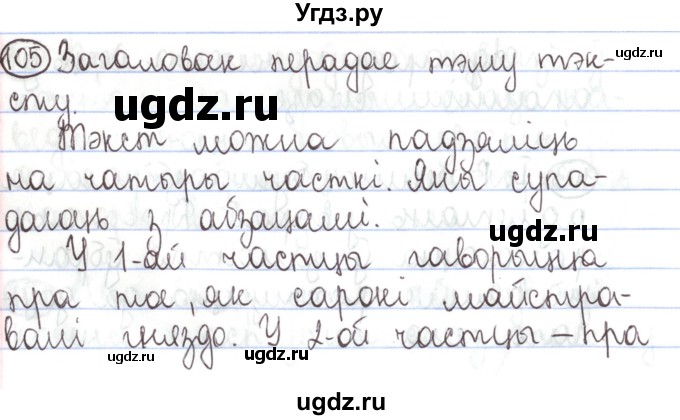 Угдз.ру
105 Загаловак перадае тэму тэк-
сту.
Тэкст можна падзяліць
на чатыры часткі. Яны супа-
даюць з абзацамі.
У 1-ай частцы гаворыцца
пра тое, як сарокі майстра-
валі гняздо. У 2-ой частцы – пра
ugdz.ru
ugdz.ru
ugdz.ru
ugdz.ru
ugdz.ru
ugdz.ru
ugdz.ru
ugdz.ru
ugdz.ru
ugdz.ru